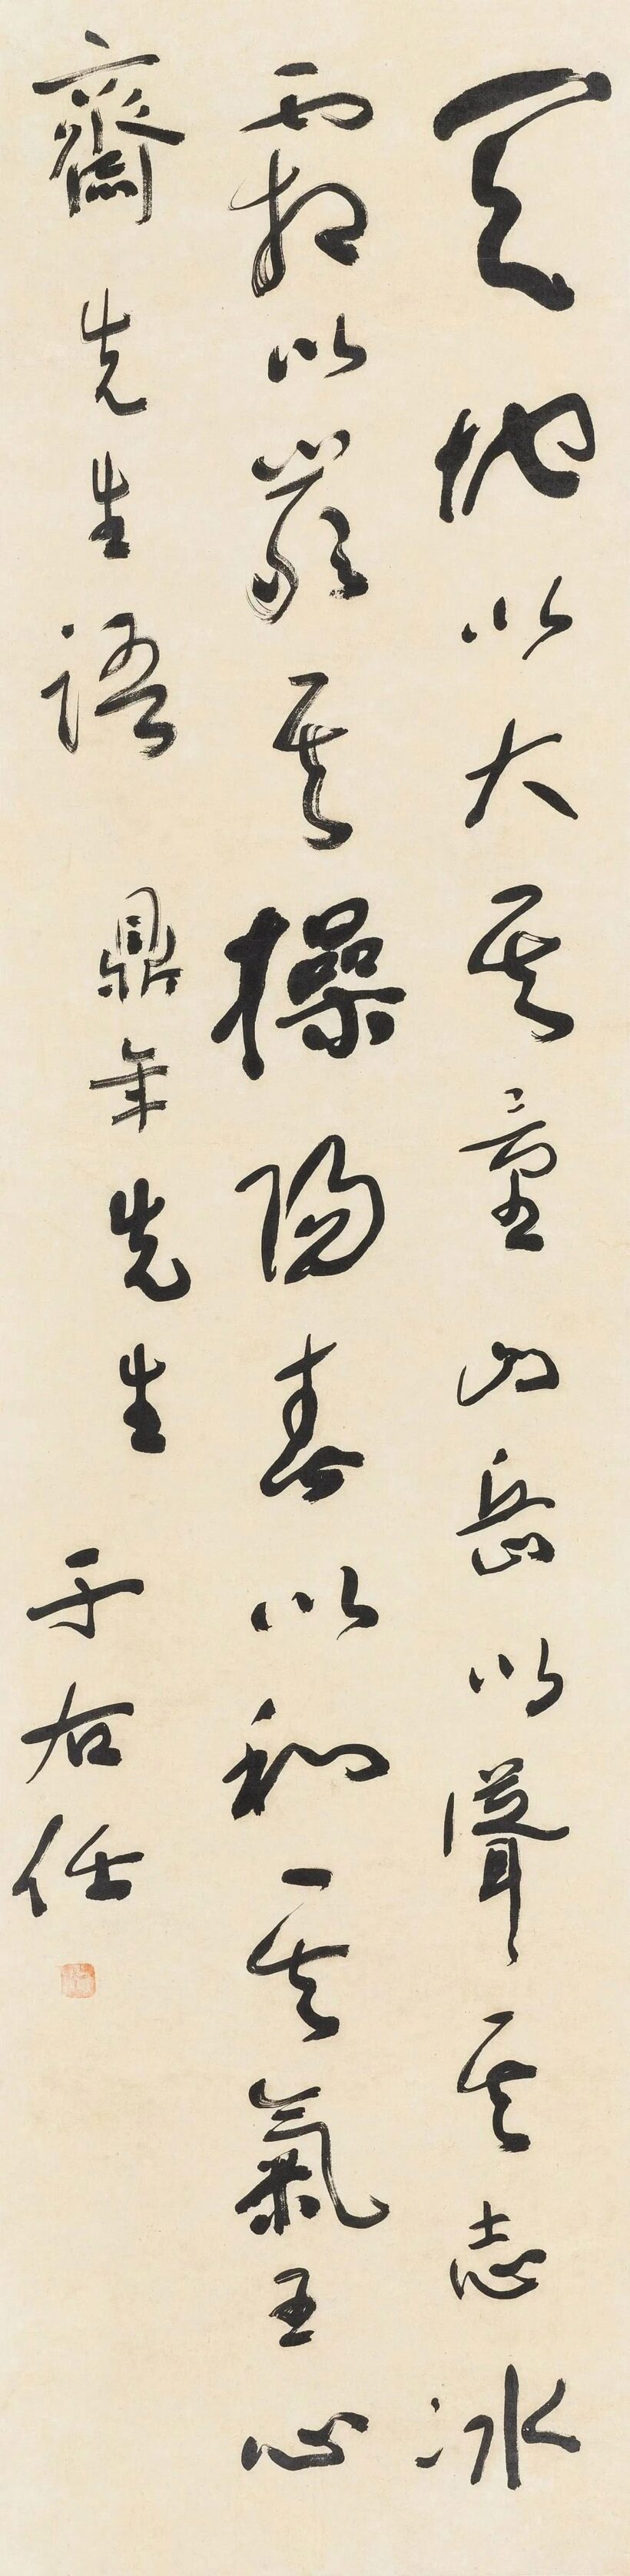 天地以大其量山岳以聳其志冰
霜以嚴其操陽春以和其氣王心
齋先生語 鼎年先生 于右任